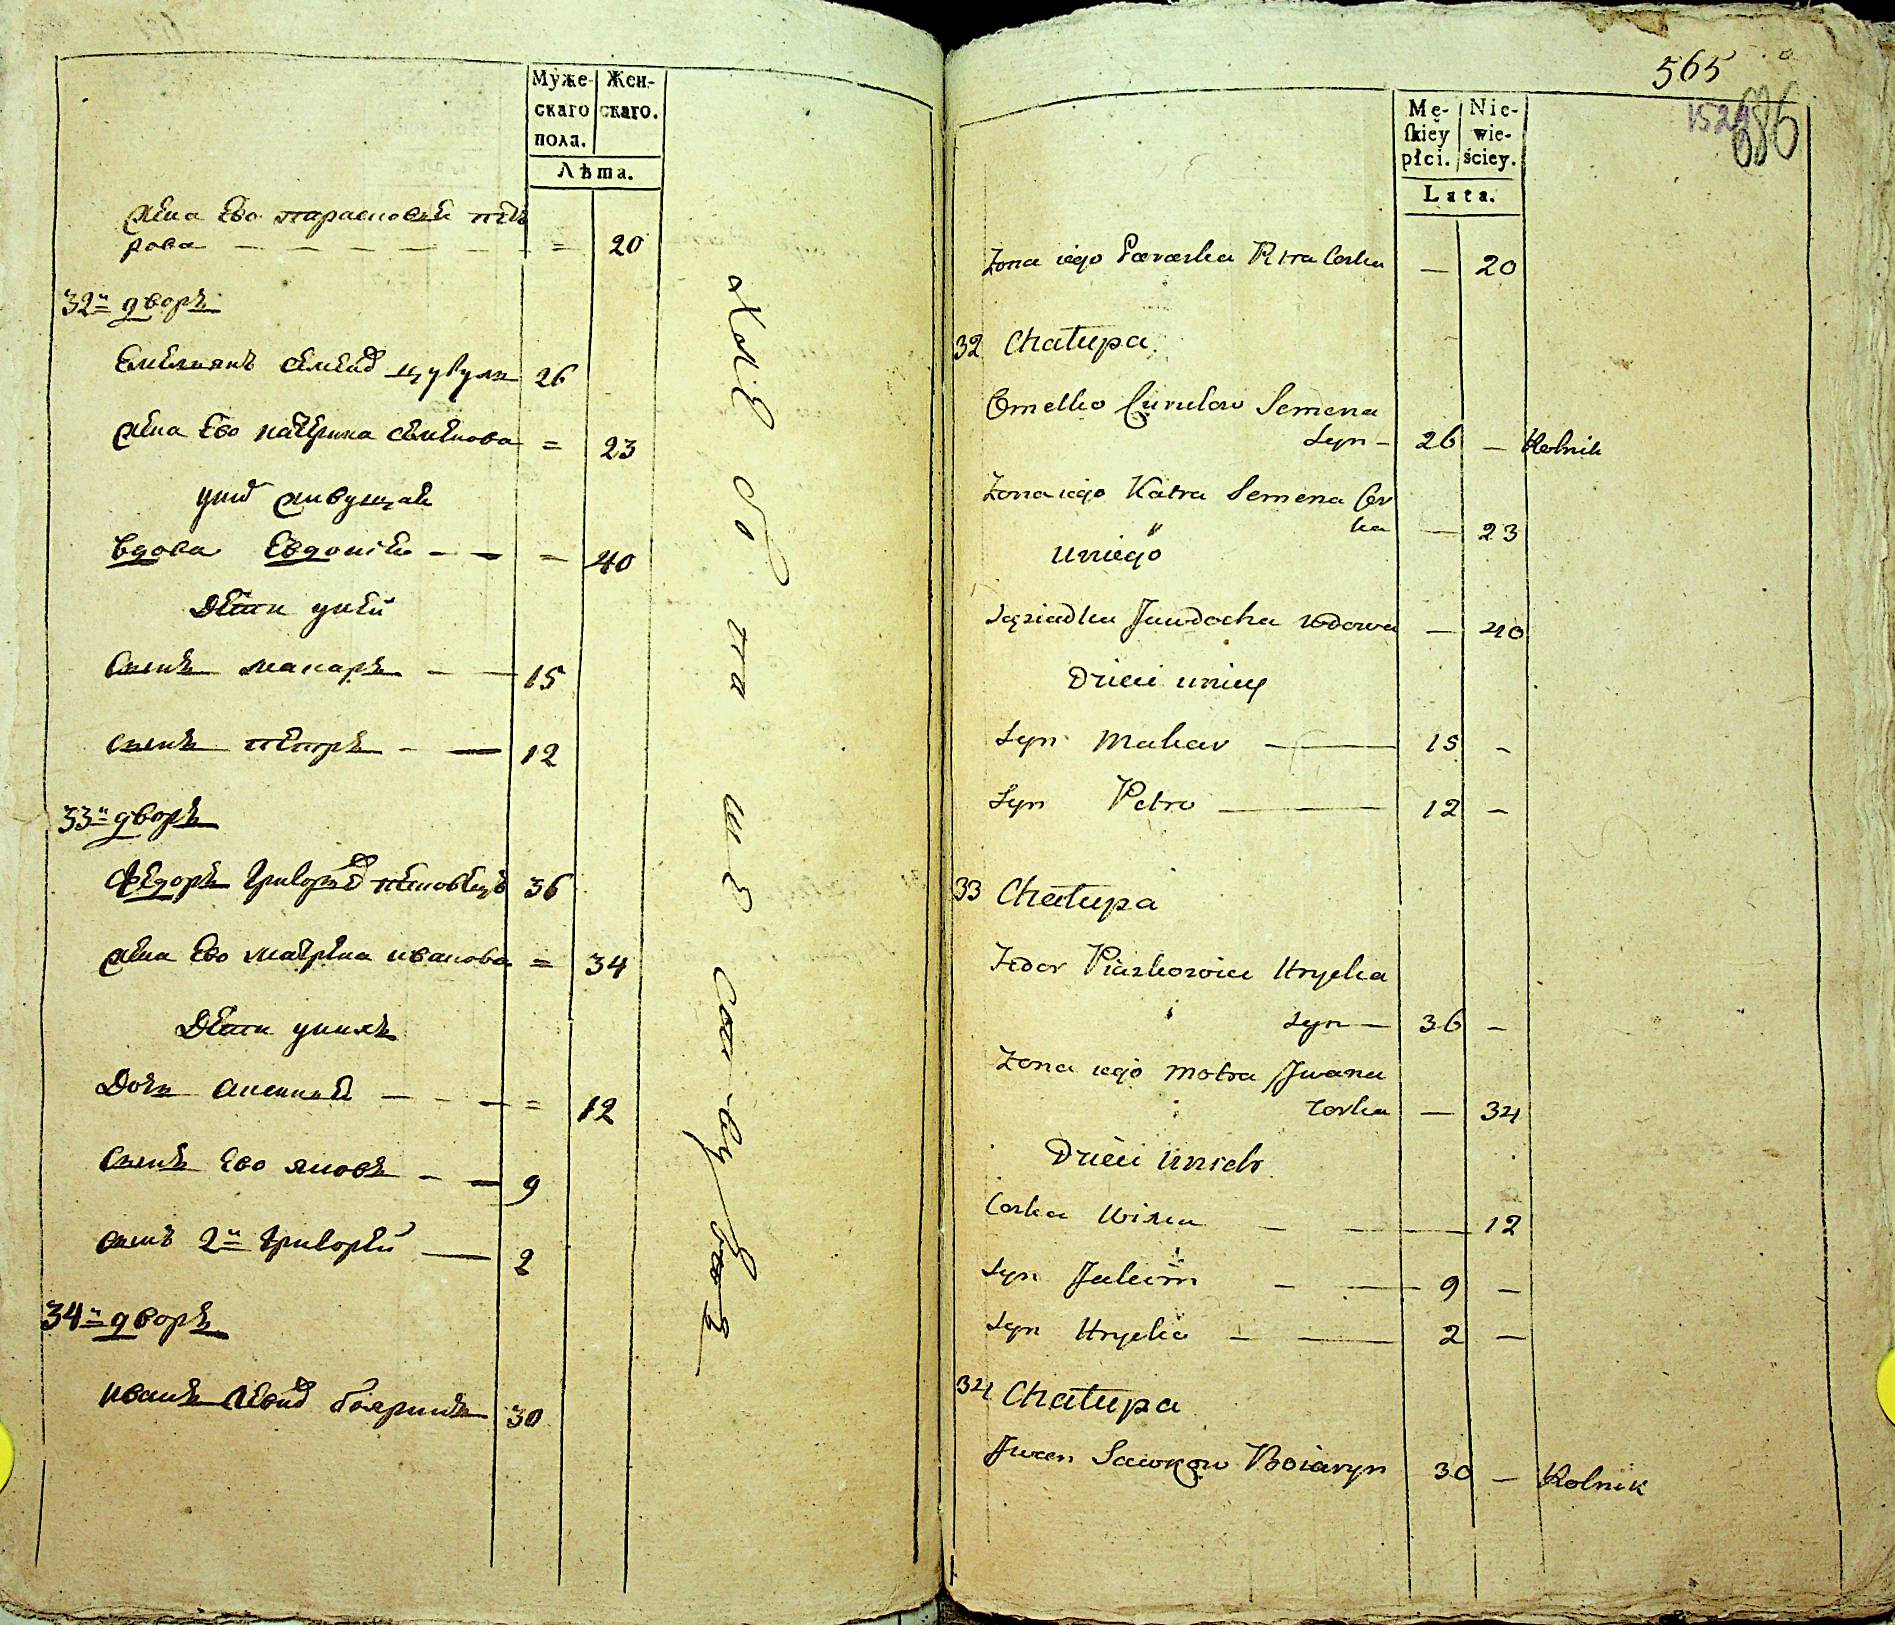 Муже-
скаго
пола.
Жен-
скаго.
Лѣта.
жена Ево парасковея пет
рова — — — — — — = 20
32й дворъ
Емелиянъ семенов цувула 26
жена Ево катерина семенова = 23
у них живущая
вдова Евдокия — — = 40
Дети у ней
сынъ макаръ — — 15
сынъ петръ — — 12
33й дворъ
Федоръ григорьев 36
жена Ево матрена иванова = 34
Дети у нихъ
Дочь — — — = 12
сынъ Ево яковъ — — 9
сынъ 2й григорей — 2
34й дворъ
иванъ бояринъ 30
565
686
Mę-
skiey
płci.
Nie-
wie-
ściey.
Lata.
Zona iego Paraska Petra Corka — 20
32 Chałupa
Omelko Semena
Syn — 26 — Rolnik
Zona iego Katra Semena Cor
ka — 23
u niego
Sąsiadka Jawdocha wdowa — 40
Dzieci u niey
Syn Makar — 15 -
Syn Petro — 12 —
33 Chałupa
Fedor Hryćka
Syn — 36 —
Zona iego Motra Jwana
Corka — 34
Dzieci u nich
Corka — — 12
Syn Jakim — — 9 —
Syn Hryćko — — 2 —
34 Chałupa
Jwan Boiaryn 30 — Rolnik